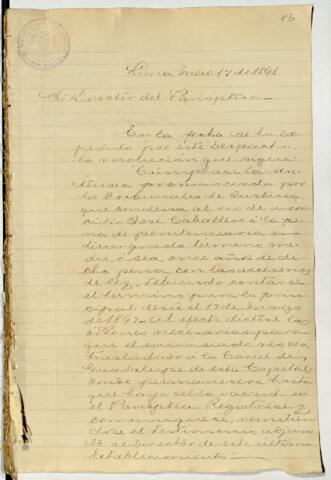 86
Lima, Enero 17 de 1898
Sr. Director del Panóptico.—
En la fecha se ha ex-
pedido por este Despacho
la resolución que sigue:
"Cúmplase la sen-
tencia pronunciada por
los Tribunales de Justicia,
que condena al reo de
José Caballero á la pe-
na de penitenciaría en
tercer grado, término me-
dio, ó sea, once años de di-
cha pena, con las accesorias
de ley, debiendo contarse
el término para la prin-
cipal desde el 17 de Marzo
de 1897. Al efecto díctese las
órdenes necesarias para
que el enunciado reo sea
trasladado á la Cárcel de
Guadalupe de esta Capital
donde permanecerá hasta
que haya celda vacante en
el Panóptico. Regístrese y
comuníquese, remitién-
dose el testimonio adjun-
to al Director de este último
establecimiento.—